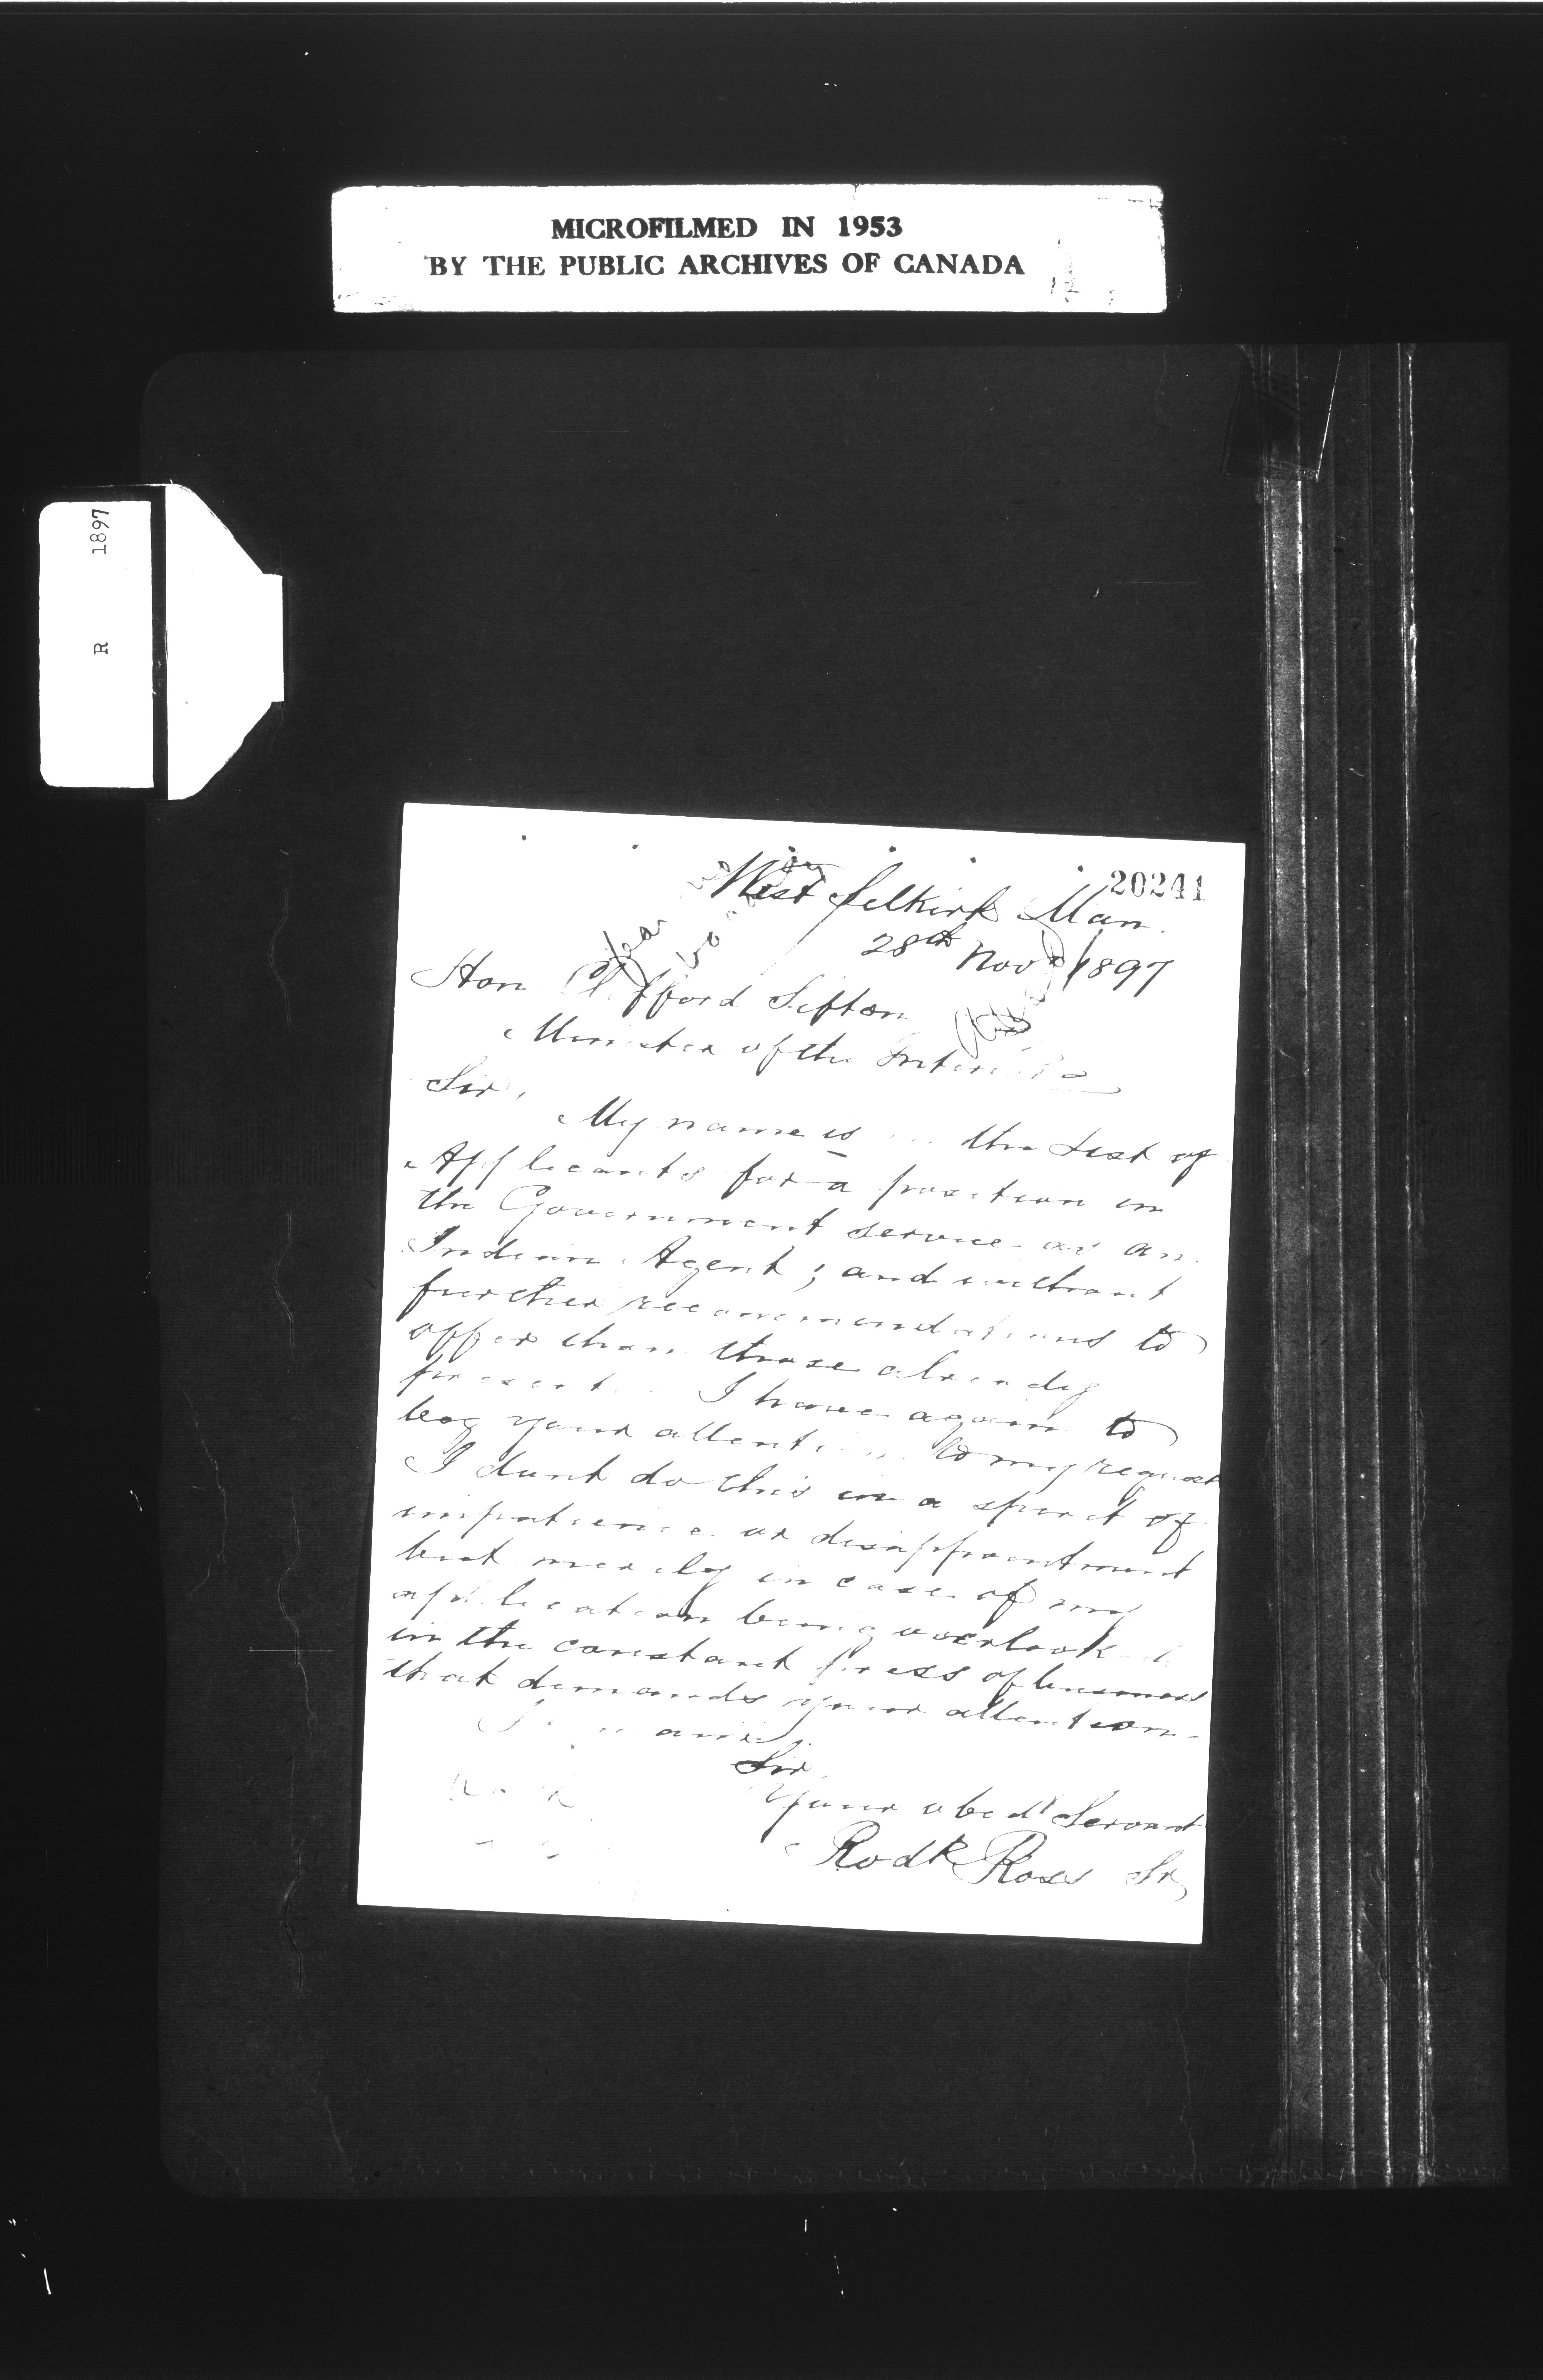 MICROFILMED IN 1953
BY THE PUBLIC ARCHIVES OF CANADA
R 1897
20241
West Selkirk Man.
28th Nov 1897
Hon Clifford Sifton
Minister of the Interior
Sir,
My name is the List of
Applicants for a position in
the Government service as an
Indian Agent; and without
further recommendations to
offer than those already
present I have again to
beg your attention to my request
I dont do this in a spirit of
impatience or disappointment
but merely in case of my
application being overlooked
in the constant press of business
that demands your attention-
I remain
Sir
Your obedt Servant
Rodk Ross Sr